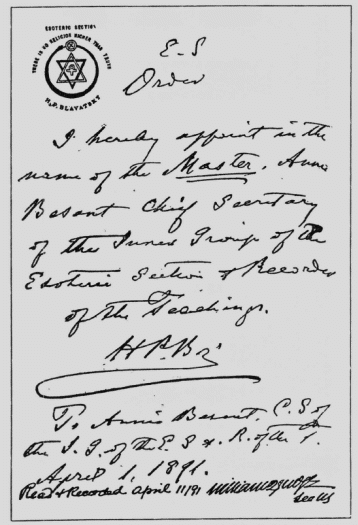 ESOTERIC SECTION
THERE IS NO RELIGION HIGHER THAN TRUTH
H.P. BLAVATSKY
E.S
Order
I hereby appoint in the
name of the Master, Annie
Besant Chief Secretary
of the Inner Group of the
Esoteric Section & Recorder
of the Teachings.
H.P.B∴
To Annie Besant, C.S of
the I.G. of the E.S & R. of the T.
April 1, 1891.
Read & Recorded April 11/91